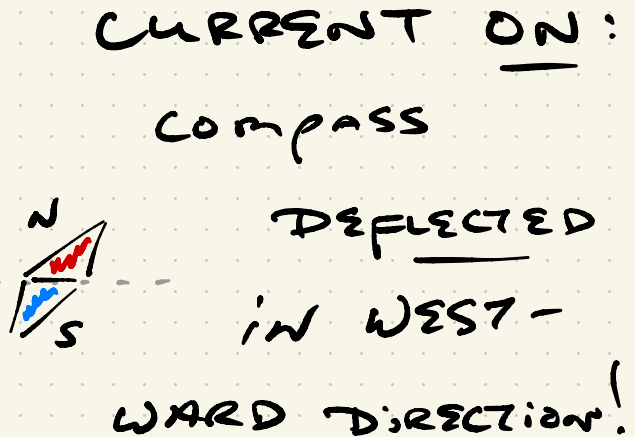 CURRENT ON:
compass
N
DEFLECTED
S
in WEST-
WARD DIRECTION!